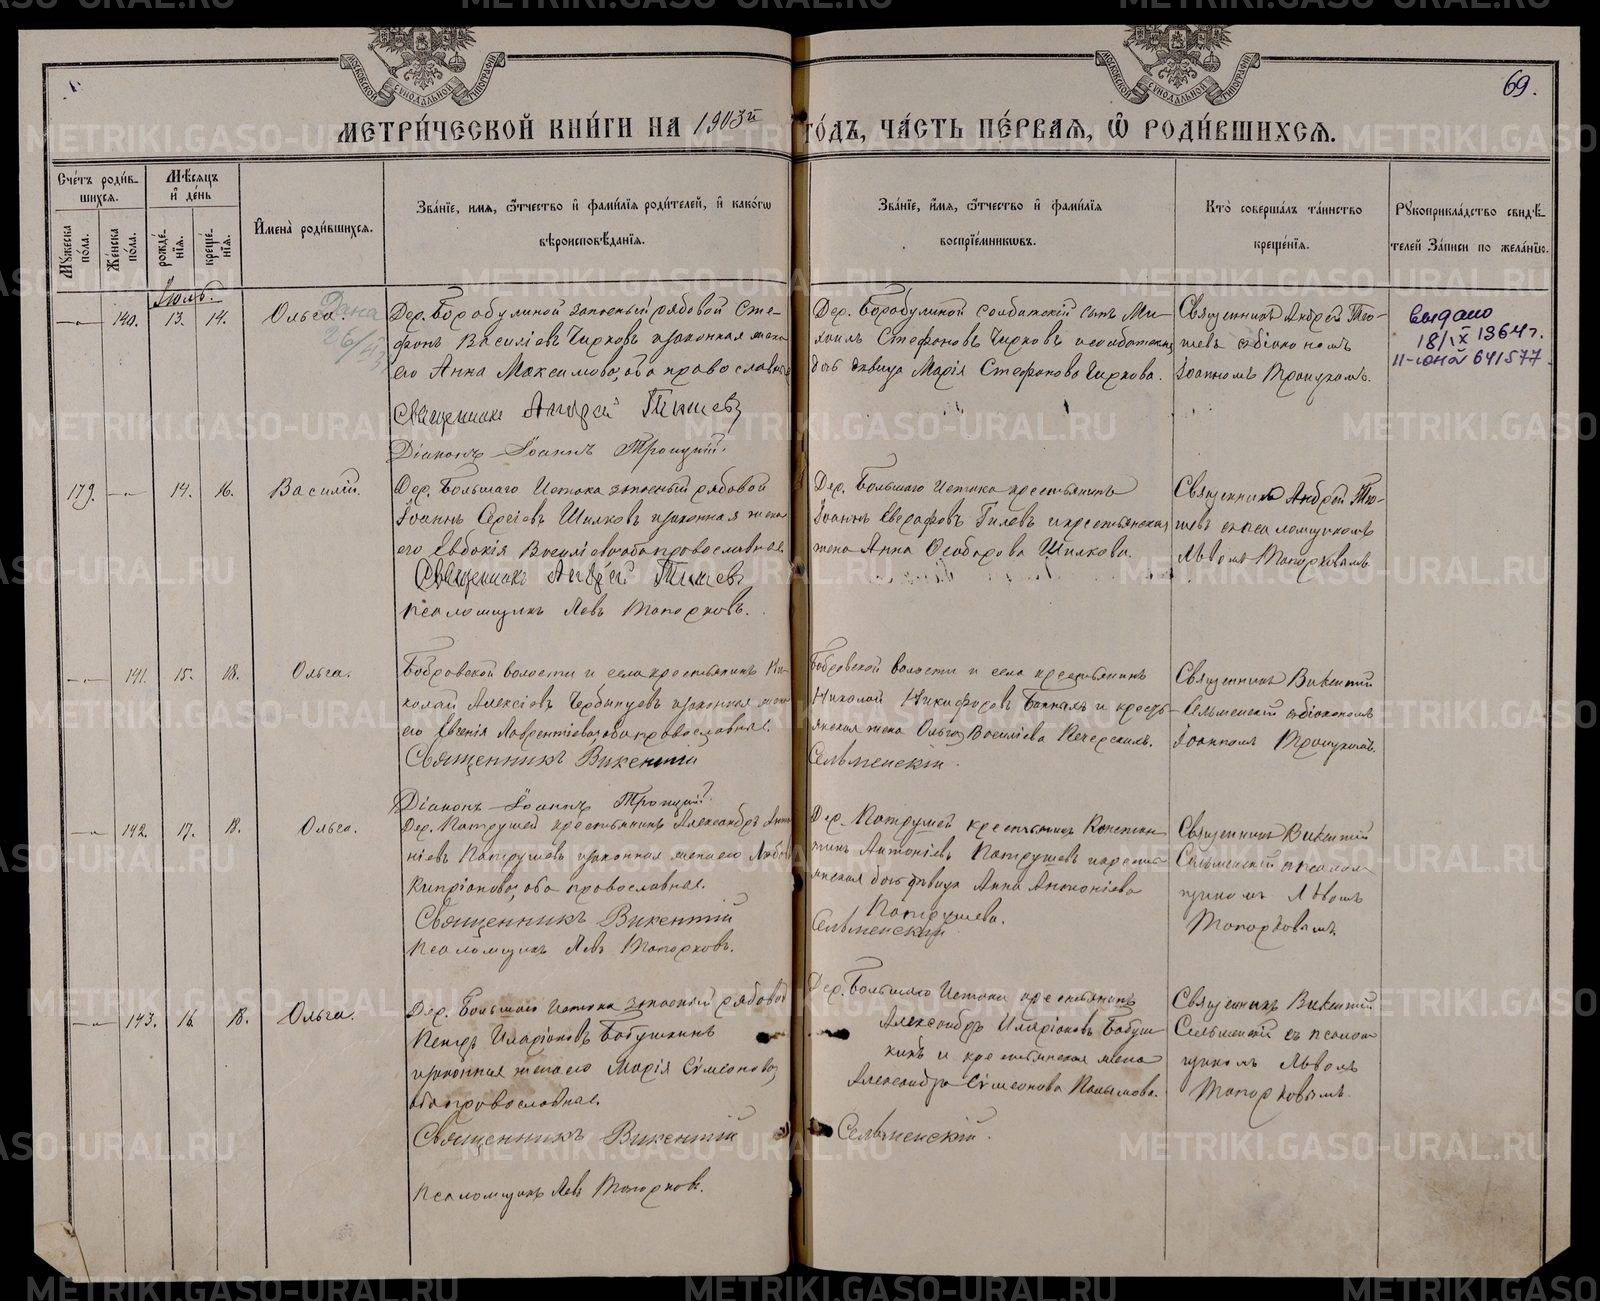 МОСКОВСКОЙ СѴНОДАЛЬНОЙ ТИПОГРАФІИ
МОСКОВСКОЙ СѴНОДАЛЬНОЙ ТИПОГРАФІИ
69.
МЕТРИ́ЧЕСКОЙ КНИ́ГИ НА 1903й ГО́ДЪ, ЧА́СТЬ ПЕ́РВАЯ, Ѡ РОДИ́ВШИХСЯ.
Сче́тъ роди́в-
шихся.
Мѣ́сяцъ
и҆ де́нь
Мꙋжеска по́ла.
Же́нска по́ла.
рожде́-
нїя.
креще́-
нїя.
И҆мена̀ роди́вшихся.
Зва́нїе, имя, ѻ҆́тчество и҆ фами́лїя роди́телей, и҆ како́гѡ
вѣроисповѣ́данїя.
Зва́нїе, и҆́мя, ѻ҆́тчество и҆ фами́лїя
воспрїе́мникѡвъ.
Кто̀ соверша́лъ та́инство
креще́нїя.
Рꙋкоприкла́дство свидѣ́-
телей За́писи по жела́нїю.
Іюль.
140. 13. 14. Ольга.
Дана
26/
Дер. Боробулиной запасный рядовой Сте-
фанъ Василіевъ Чирковъ и законная жена
его Анна Максимова, оба православные
Священникъ Андрей Тюшевъ
Діаконъ Іоаннъ Троицкій.
Дер. Боробулиной солдатскій сынъ Ми-
хаилъ Стефановъ Чирковъ и солдатская
дочь дѣвица Марія Стефанова Чиркова.
Священникъ Андрей Тю-
шевъ съ діакономъ
Іоанномъ Троицкимъ.
выдано
18/IX 1964 г.
II-юной 641577
179. 14. 16. Василій.
Дер. Большаго Истока запасный рядовой
Іоаннъ Сергіевъ Шилковъ и законная жена
его Евдокія Василіева, оба православные.
Священникъ Андрей Тюшевъ
Псаломщикъ Левъ Топорковъ.
Дер. Большаго Истока крестьянинъ
Іоаннъ Евграфовъ Гилевъ и крестьянская
жена Анна Ѳеодорова Шилкова.
Священникъ Андрей Тю-
шевъ съ псаломщикомъ
Львомъ Топорковымъ
141. 15. 18. Ольга.
Бобровской волости и села крестьянинъ Ни-
колай Алексіевъ и законная жена
его Евгенія Лаврентіева, оба православные.
Священникъ Викентій
Діаконъ Іоаннъ Троицкій.
Бобровской волости и села крестьянинъ
Николай Никифоровъ и кресть-
янская жена Ольга Василіева
Сельменскій.
Священникъ Викентій
Сельменскій съ діакономъ
Іоанномъ Троицкимъ.
142. 17. 18. Ольга.
Дер. Патрушей крестьянинъ Александръ Анто-
ніевъ Патрушевъ и законная жена его Любовь
Кипріанова, оба православные.
Священникъ Викентій
Псаломщикъ Левъ Топорковъ.
Дер. Патрушей крестьянинъ Констан-
тинъ Антоніевъ Патрушевъ и кресть-
янская дочь дѣвица Анна Антоніева
Патрушева.
Сельменскій
Священникъ Викентій
Сельменскій съ псалом-
щикомъ Львомъ
Топорковымъ
143. 16. 18. Ольга.
Дер. Большаго Истока запасный рядовой
Петръ Иларіоновъ Бабушкинъ
и законная жена его Марія Симеонова,
оба православные.
Священникъ Викентій
Псаломщикъ Левъ Топорковъ.
Дер. Большаго Истока крестьянинъ
Александръ Иларіоновъ Бабуш-
кинъ и крестьянская жена
Александра Симеонова
Сельменскій.
Священникъ Викентій
Сельменскій съ псалом-
щикомъ Львомъ
Топорковымъ.
METRIKI.GASO-URAL.RU